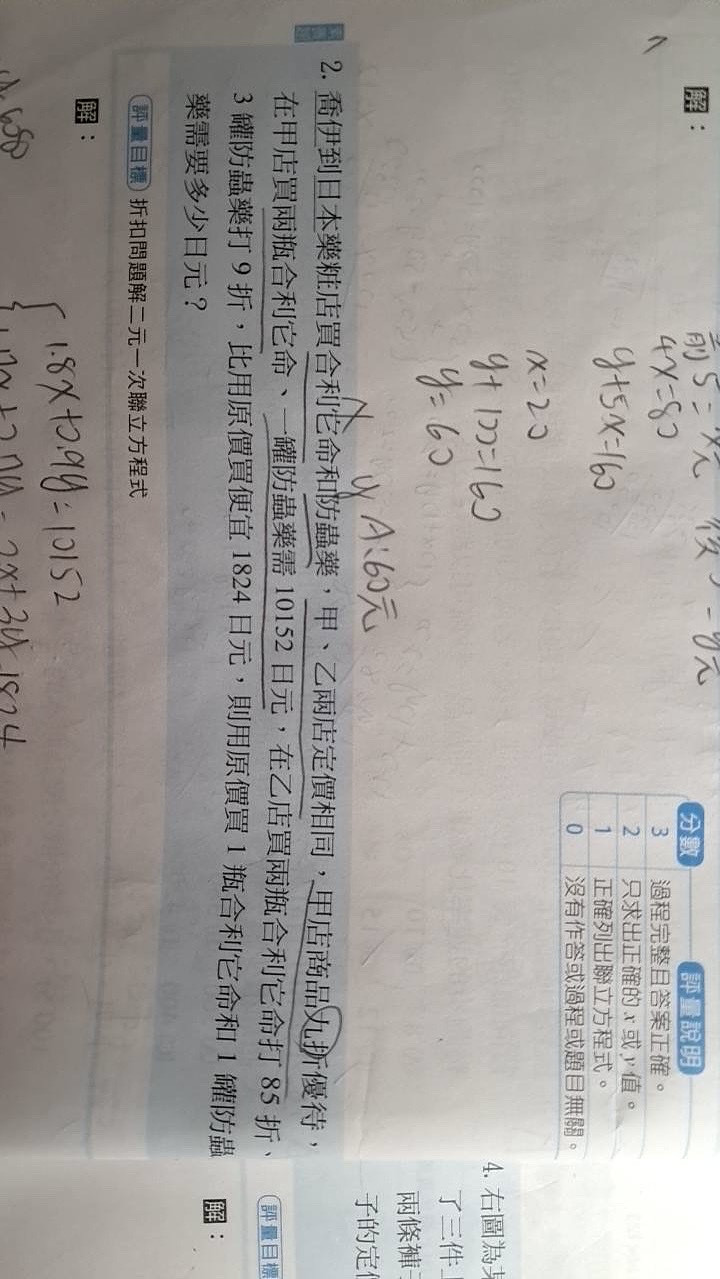 解：
4x=80
y+5x=160
x=20
y+100=160
y=60
A:60元
分數 評量說明
3 過程完整且答案正確。
2 只求出正確的 x 或 y 值。
1 正確列出聯立方程式。
0 沒有作答或過程或題目無關。
x y
2. 喬伊到日本藥粧店買合利它命和防蟲藥，甲、乙兩店定價相同，甲店商品九折優待，
在甲店買兩瓶合利它命、一罐防蟲藥需 10152 日元，在乙店買兩瓶合利它命打 85 折、
3 罐防蟲藥打 9 折，比用原價買便宜 1824 日元，則用原價買 1 瓶合利它命和 1 罐防蟲
藥需要多少日元？
評量目標 折扣問題解二元一次聯立方程式
解：
1.8x+0.9y=10152
1.7x+2.7y=2x+3y-1824
4. 右圖為某
了三件上
兩條褲子
子的定價
評量目標
解：